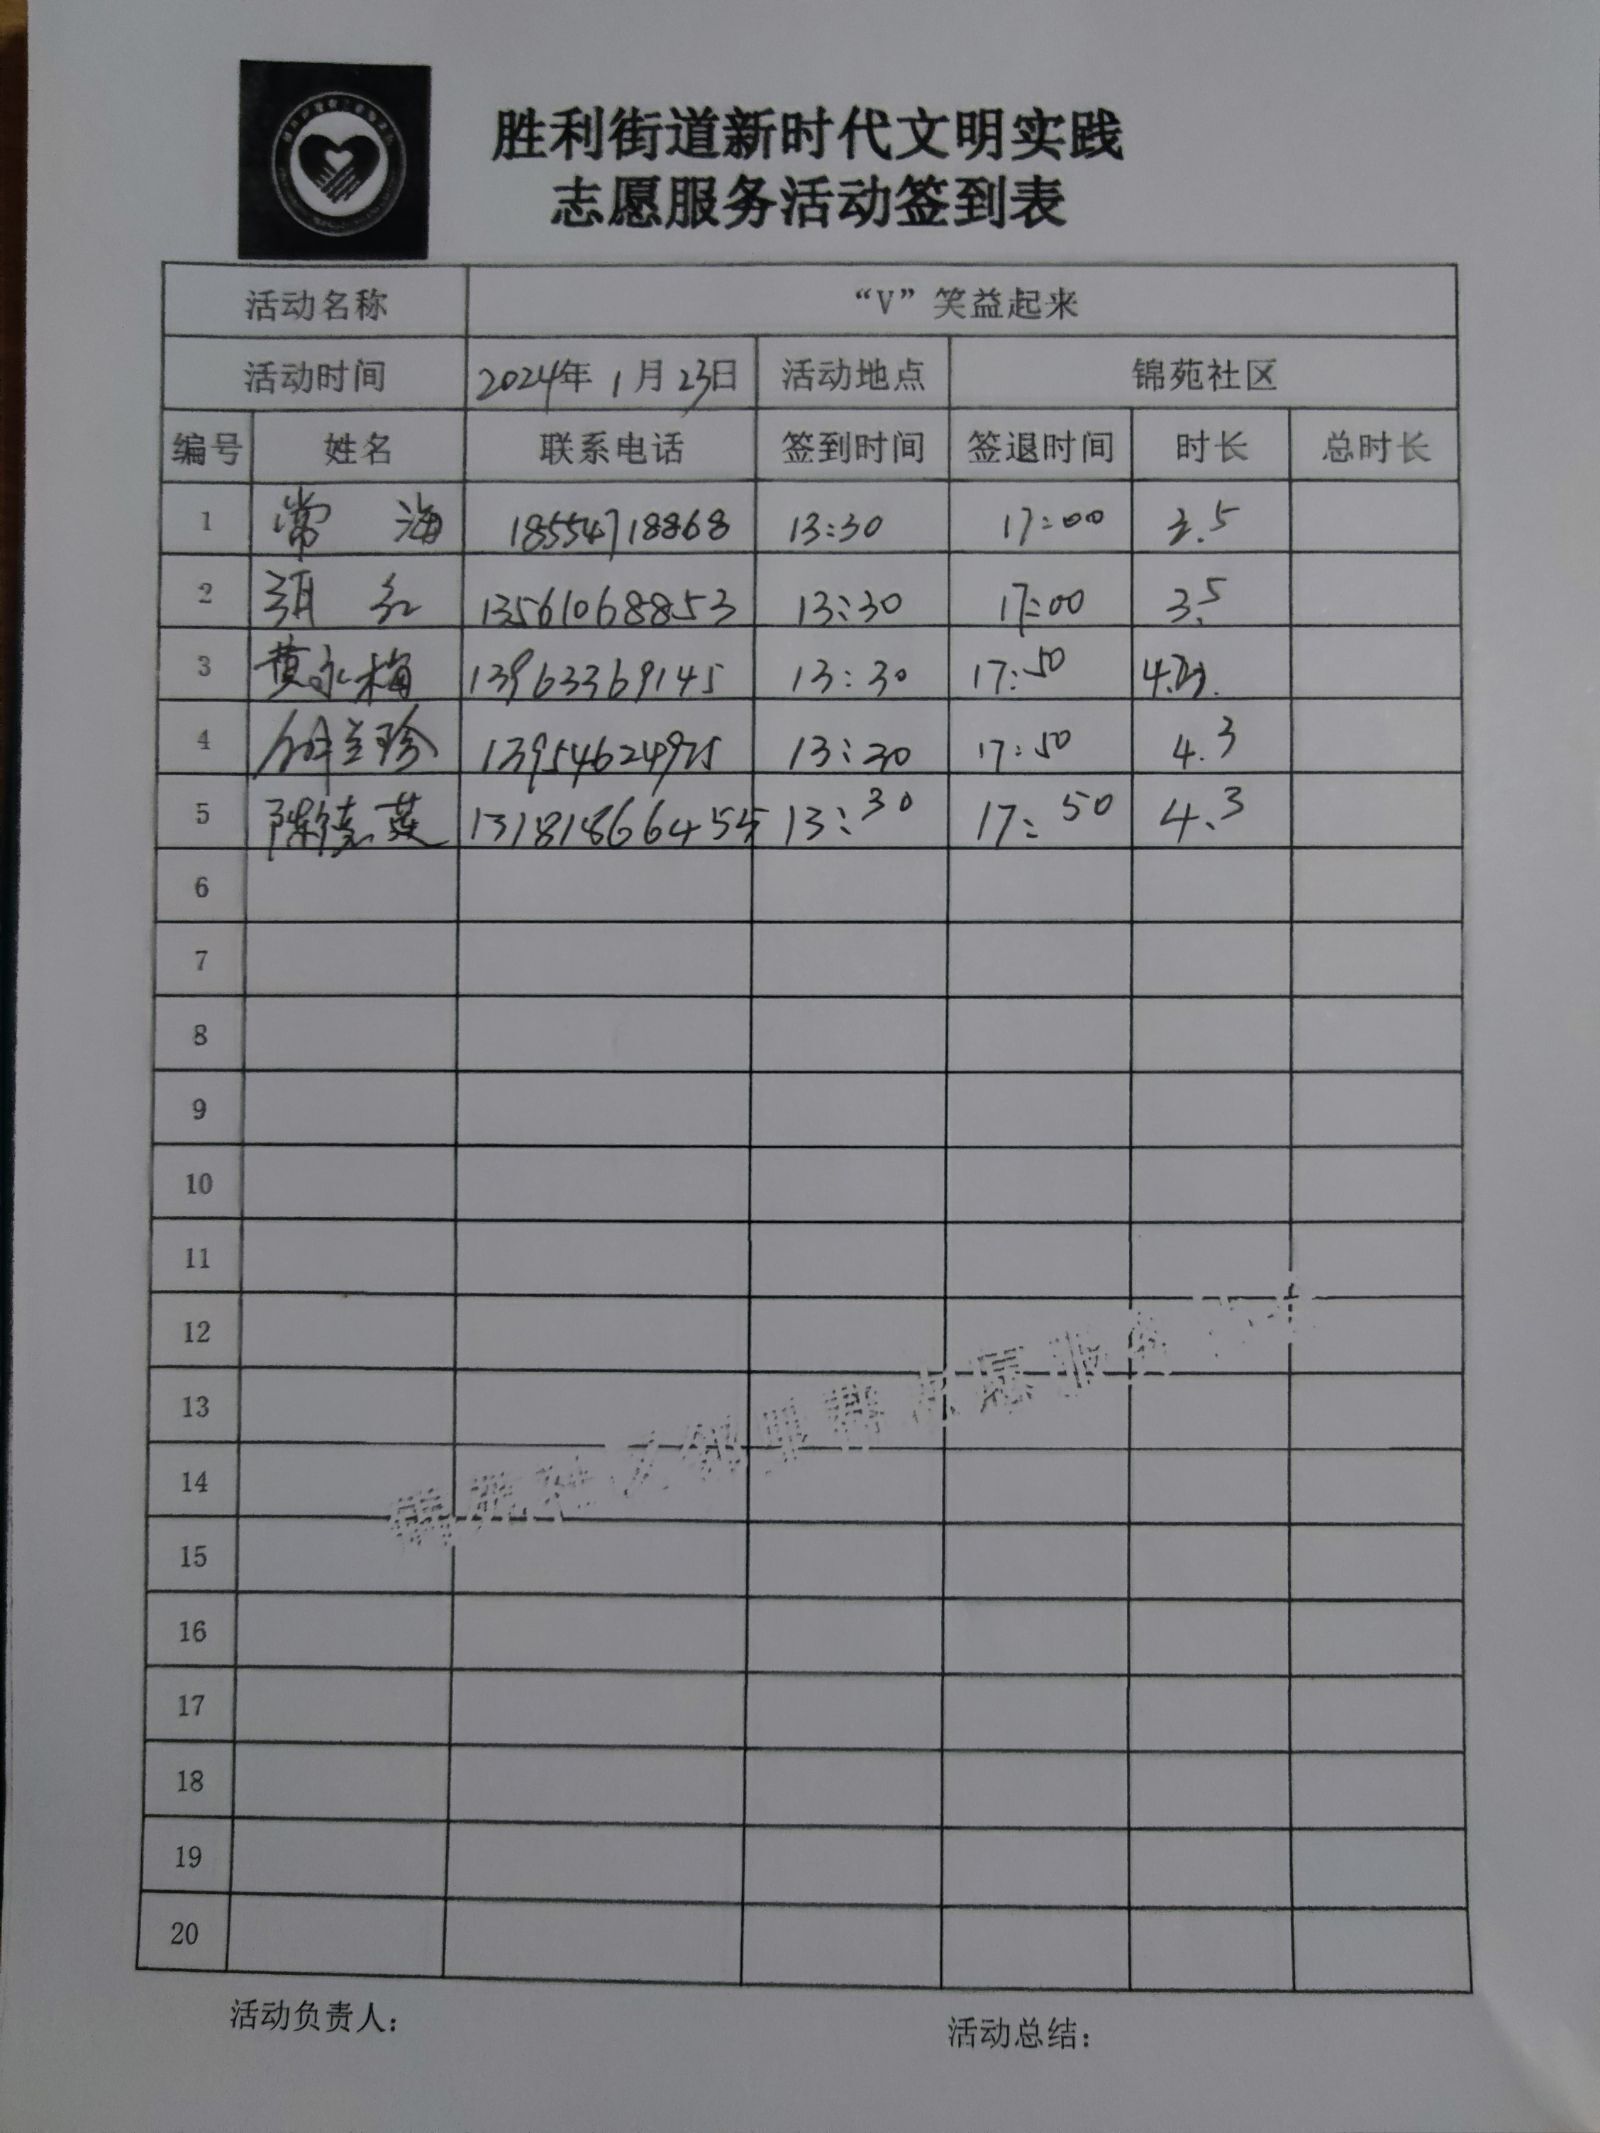 胜利街道新时代文明实践
志愿服务活动签到表
活动名称 “V”笑益起来
活动时间 2024年 1月 23日 活动地点 锦苑社区
编号 姓名 联系电话 签到时间 签退时间 时长 总时长
1 常 海 18554718868 13:30 17:00 3.5
2 红 13561068853 13:30 17:00 3.5
3 黄永梅 13963369145 13:30 17:50
4 兰珍 13954624925 13:30 17:50 4.3
5 陈德英 131818664545 13:30 17:50 4.3
6
7
8
9
10
11
12
13
14
15
16
17
18
19
20
活动负责人: 活动总结: